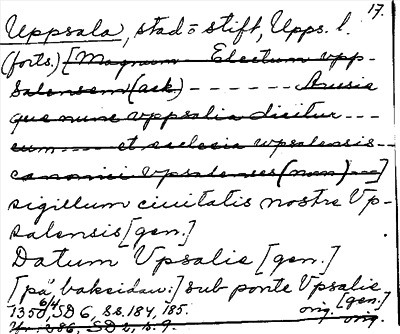 17.
Uppsala, stad o stift, Upps. l.
(forts.) [Magnum Electum vpp-
salensem (ack) - - - - - - - Arusia
que nunc vppsalia dicitur - - -
eum - - - - et ecclesia vpsalensis - -
canonici Vpsalenses (nom) - -]
sigillum ciuitatis nostre Vp-
salensis [gen.]
Datum Vpsalie [gen.]
[på baksidan:] sub ponte Vpsalie [gen.]
1350 6/4, SD 6, ss. 184, 185. orig.
SD 2, s. 9. orig.